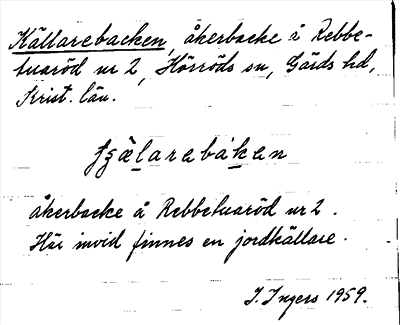 Källarebacken, åkerbacke å Rebbe-
tuaröd nr 2, Hörröds sn, Gärds hd,
Krist. län.
åkerbacke å Rebbetuaröd nr 2.
Här invid finnes en jordkällare.
I. Ingers 1959.